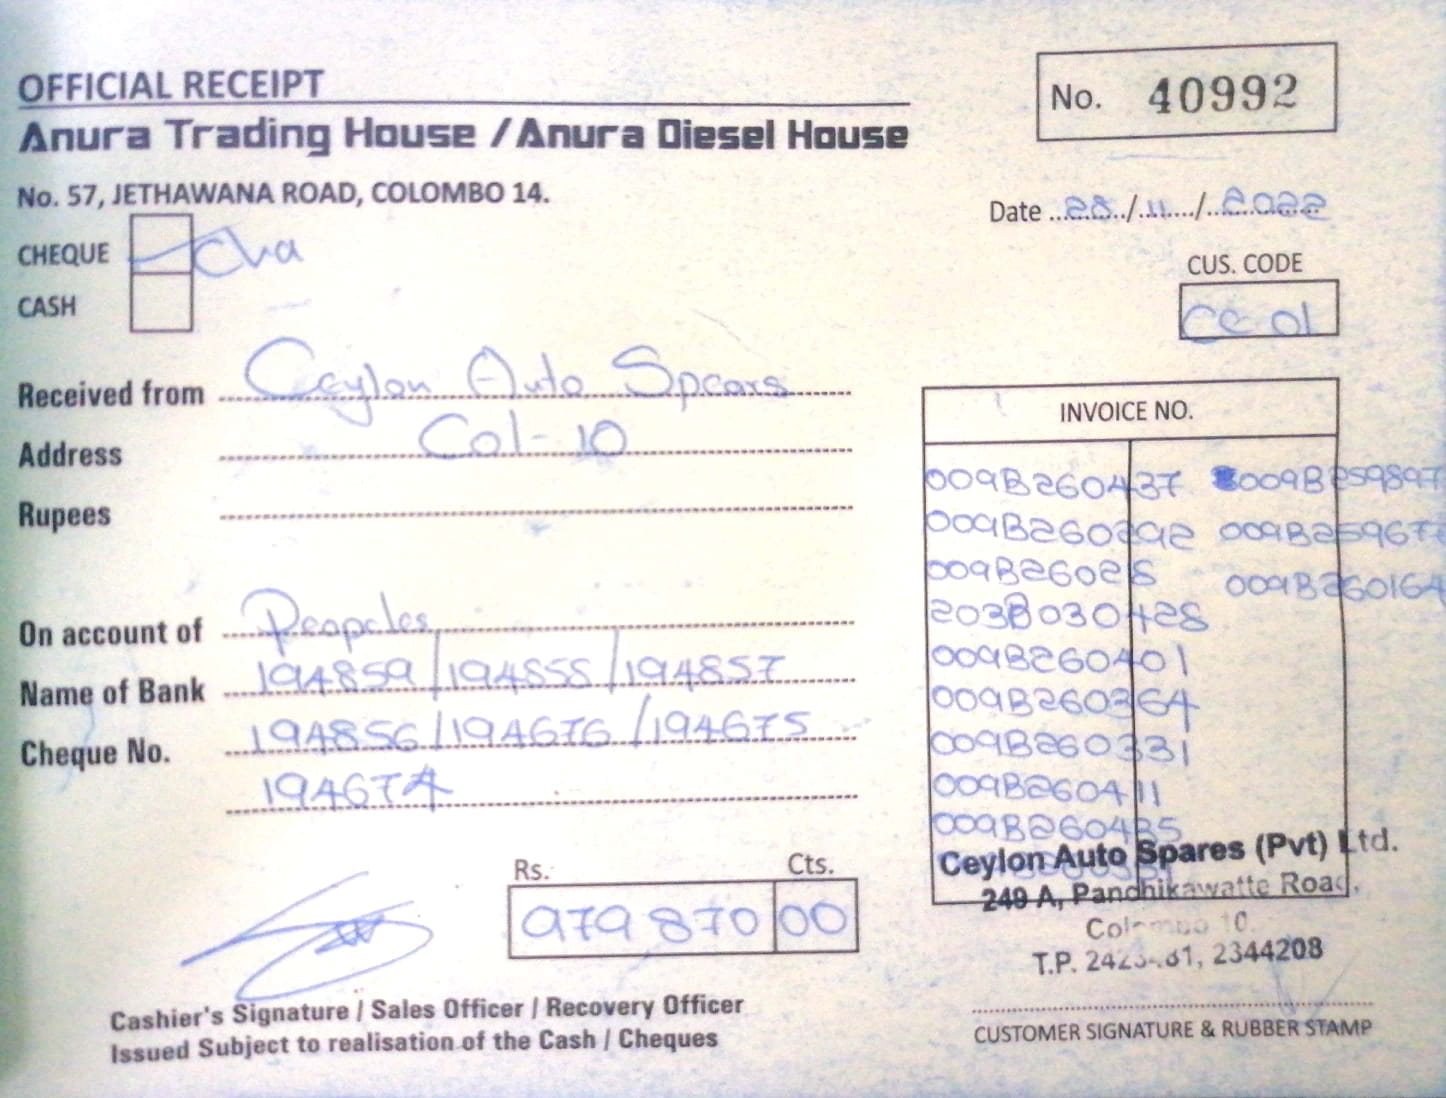 OFFICIAL RECEIPT
No. 40992
Anura Trading House / Anura Diesel House
No. 57, JETHAWANA ROAD, COLOMBO 14.
Date 28/11/2022
CHEQUE Cha
CASH
CUS. CODE
CE 01
Received from Ceylon Auto Spears
Address Col-10
Rupees
On account of Peopeles
Name of Bank 194859/194858/194857
Cheque No. 194856/194676/194675
194674
INVOICE NO.
009B260437 009B259897
009B260292 009B25967
009B26028 009B260164
203B030428
009B260401
009B260364
009B260331
009B260411
009B260435
Ceylon Auto Spares (Pvt) Ltd.
249 A, Panchikawatte Road,
Colombo 10.
T.P. 2344208
Rs. Cts.
979 870 00
Cashier's Signature / Sales Officer / Recovery Officer
Issued Subject to realisation of the Cash / Cheques
CUSTOMER SIGNATURE & RUBBER STAMP